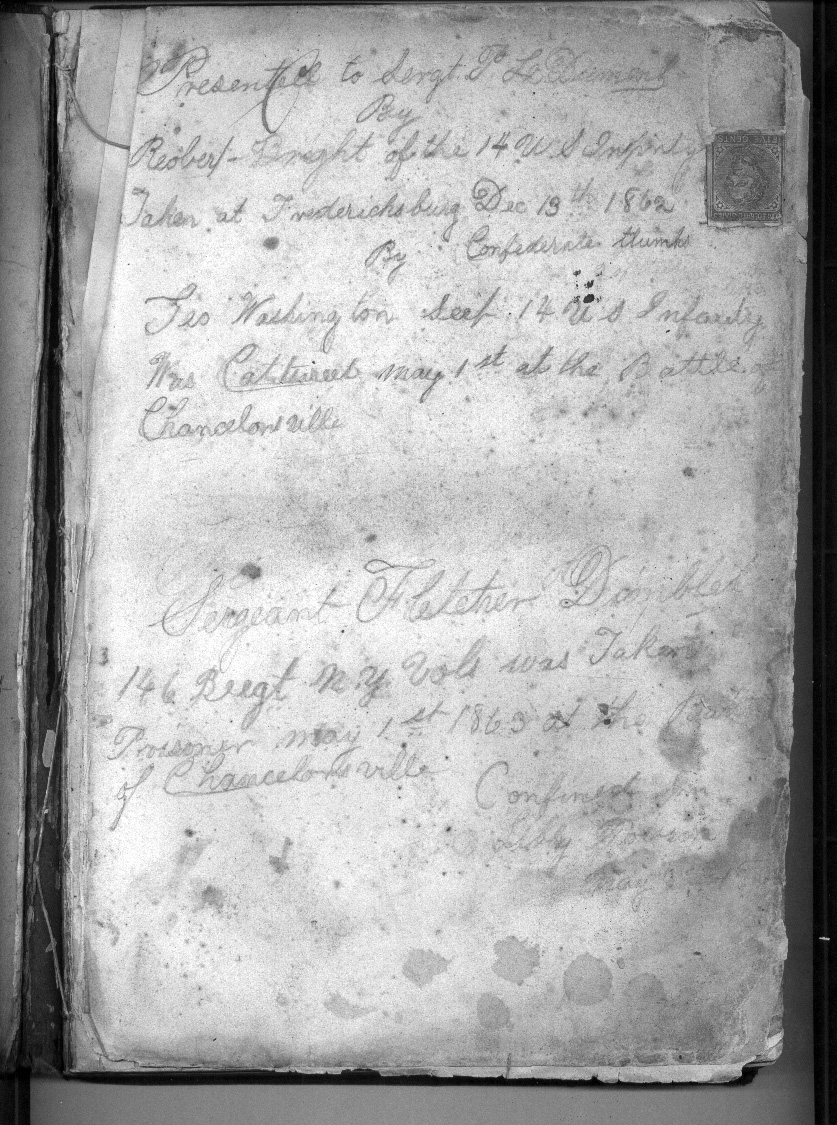 Presented to Sergt F L Dument
By
Robert Bright of the 14 U S Infintry
Taken at Fredericksburg Dec 13th 1862
By Confederate thumks
Geo Washington Seef 14 U S Infantry
Was Cattured may 1st at the Battle of
Chancelorsville
Sergeant Fletcher Dambler
146 Regt N.Y. Vols was Taken
Prisoner may 1st 1863 at the Bat
of Chancelorsville
Confined In
Libby
May
FIVE CENTS